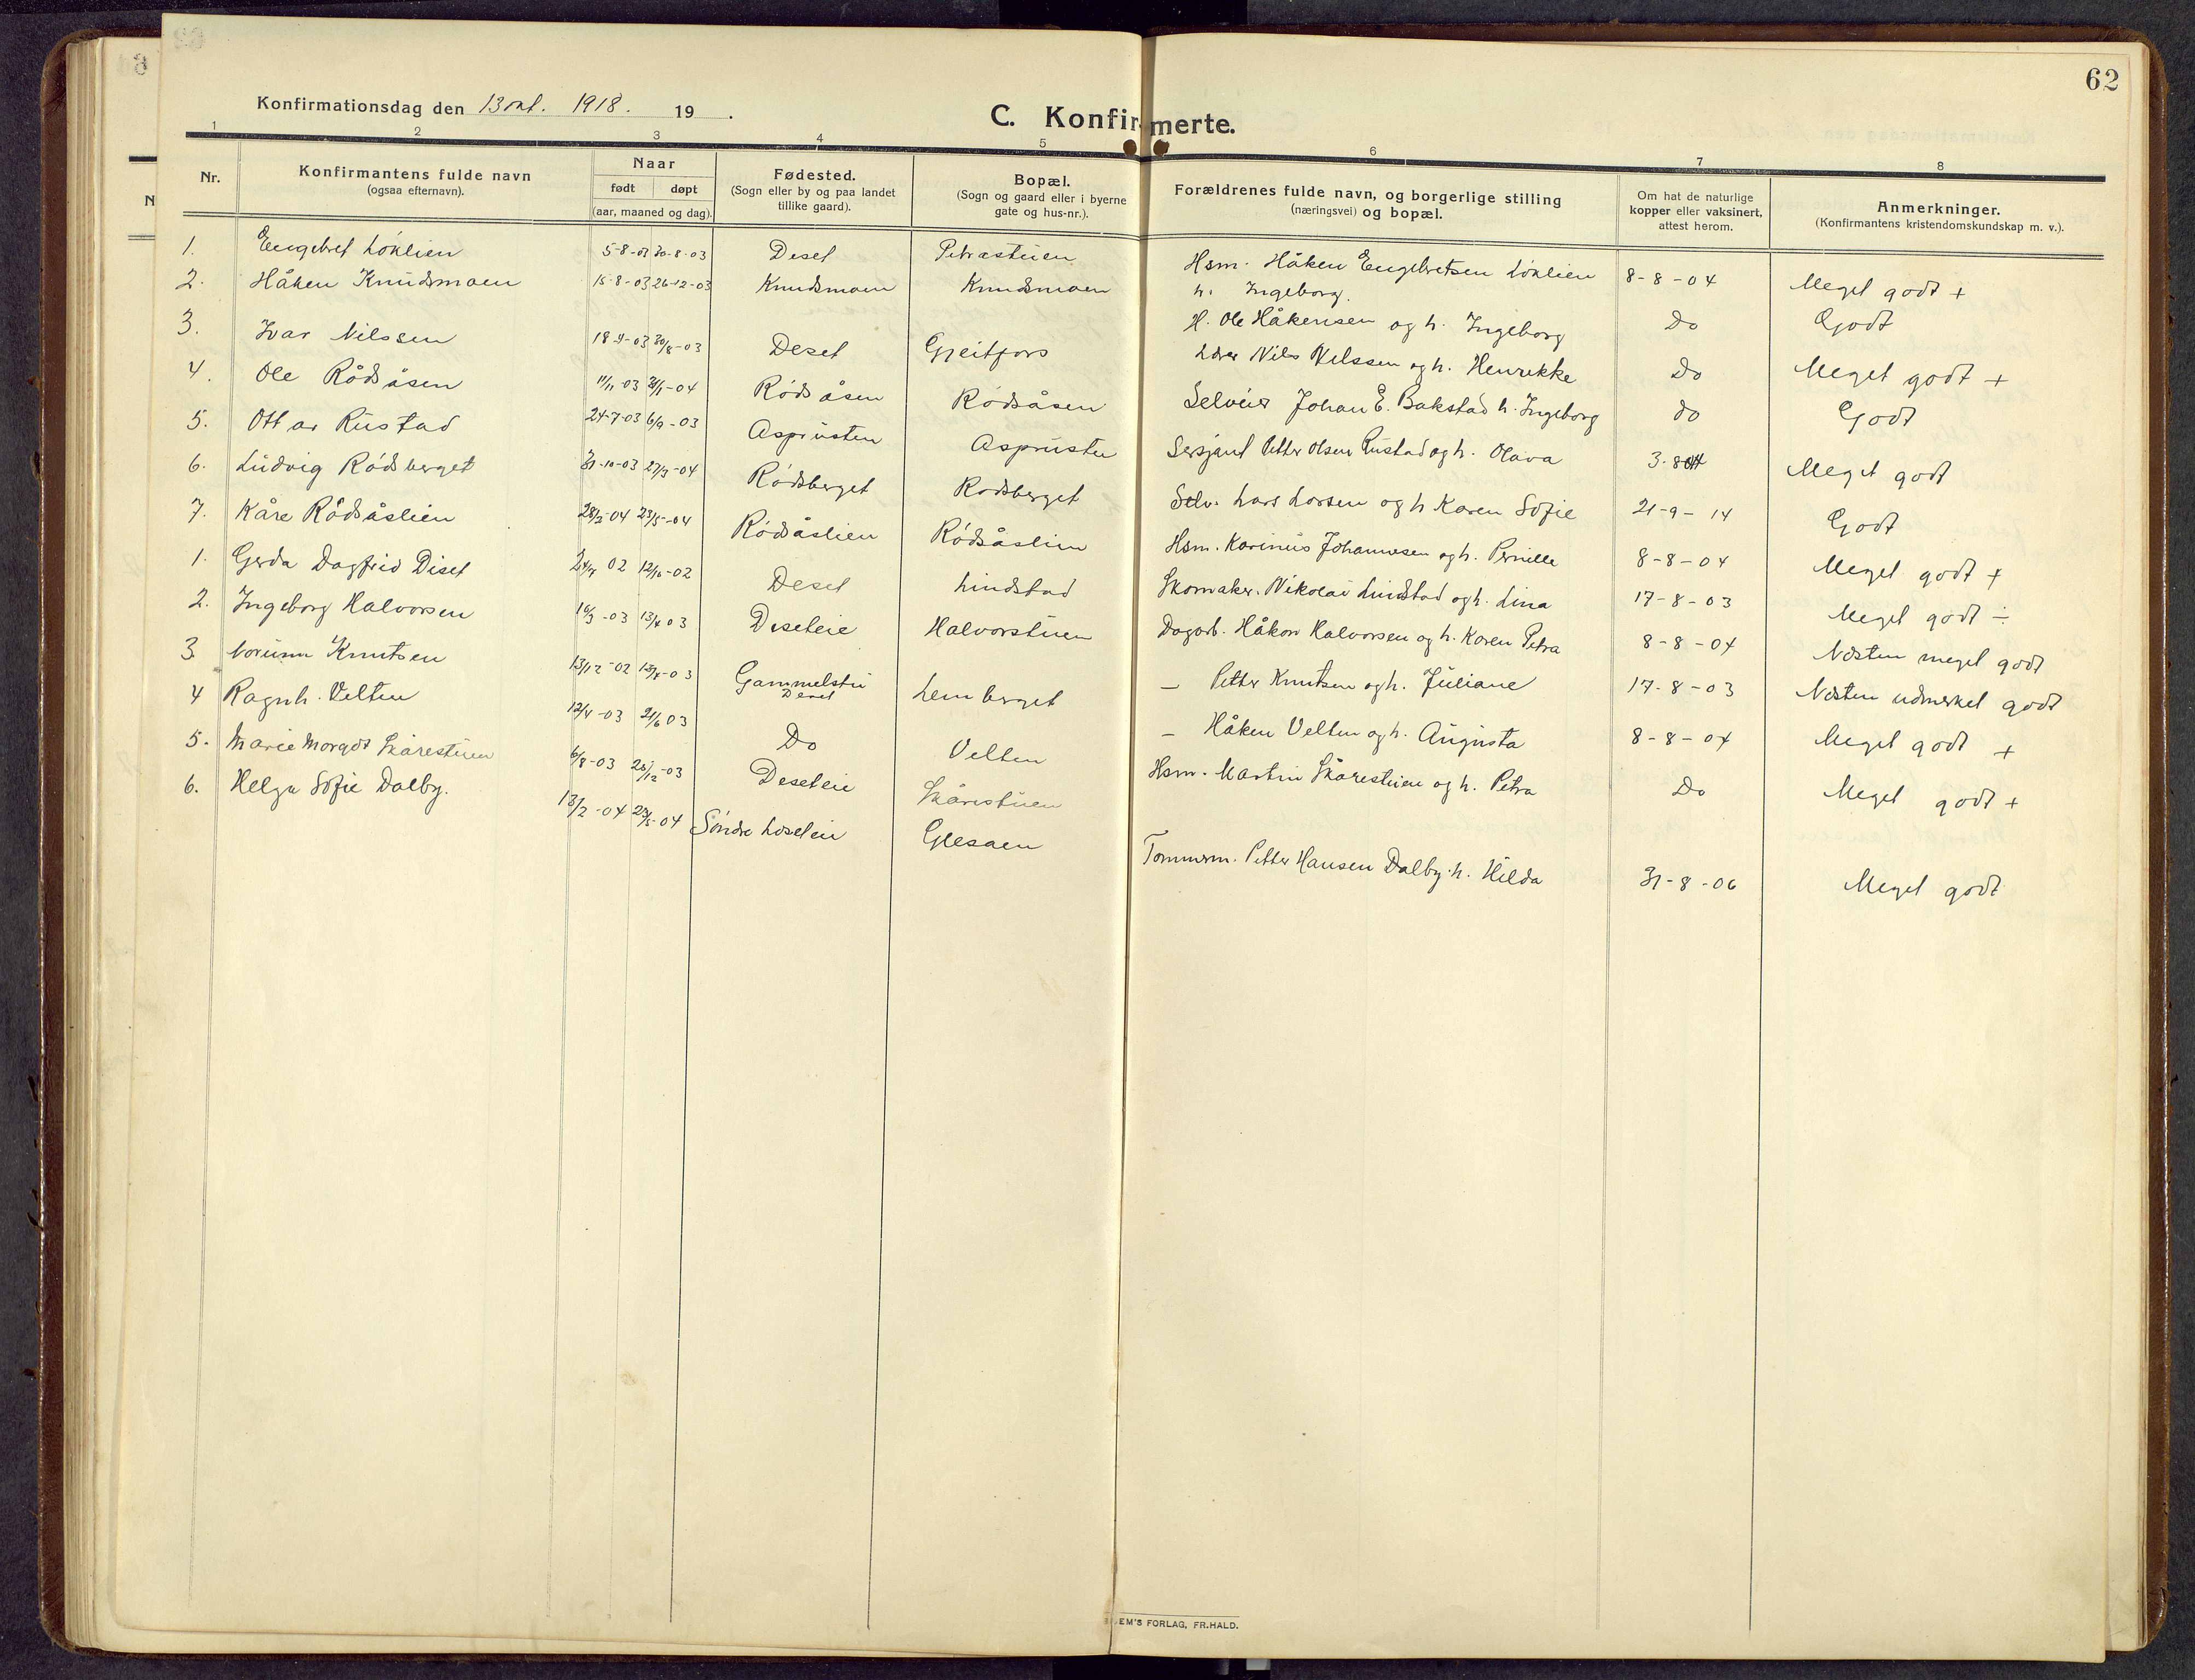 62
Konfirmationsdag den 13 okt. 1918. 19 .
C. Konfirmerte.
1 2 3 4 5 6 7 8
Nr. Konfirmantens fulde navn (ogsaa efternavn). Naar født døpt (aar, maaned og dag). Fødested. (Sogn eller by og paa landet tillike gaard). Bopæl. (Sogn og gaard eller i byerne gate og hus-nr.). Forældrenes fulde navn, og borgerlige stilling (næringsvei) og bopæl. Om hat de naturlige kopper eller vaksinert, attest herom. Anmerkninger. (Konfirmantens kristendomskundskap m. v.).
1. Engebret Løklien 5-8-03 30-8-03 Deset Petrastuen Hsm. Håken Engebretsen Løklien h. Ingeborg. 8-8-04 Meget godt +
2. Håken Knudsmoen 15-8-03 26-12-03 Knudsmoen Knudsmoen H. Ole Håkensen og h. Ingeborg Do Godt
3. Ivar Nilssen 18-9-03 30/8-03 Deset Gjeitfors Lærer Nils Nilssen og h. Henrikke Do Meget godt +
4. Ole Rødsåsen 11/11-03 31/1-04 Rødsåsen Rødsåsen Selveier Johan E. Bakstad h. Ingeborg do Godt
5. Ottar Rustad 24-7-03 6/9-03 Asprusten Asprusten Sersjant Petter Olsen Rustad og h. Olava 3-8-04 Meget godt
6. Ludvig Rødsberget 31-10-03 27/3-04 Rødsberget Rødsberget Selv. Lars Larsen og h Karen Sofie 21-9-14 Godt
7. Kåre Rødsåslien 28/2-04 23/5-04 Rødsåslien Rødsåslien Hsm. Karinius Johannesen og h. Pernille 8-8-04 Meget godt +
1. Gerda Dagfrid Diset 02 12/10-02 Deset Lindstad Skomaker. Nikolai Lindstad og h. Lina 17-8-03 Meget godt ÷
2. Ingeborg Halvorsen 16/3-03 13/4 03 Deseteie Halvorstuen Dagarb. Håkon Halvorsen og h. Karen Petra 8-8-04 Næsten meget godt
3. Norunn Knutsen 13/12-02 -03 Gammelstu Deset Lemberget — Petter Knutsen og h. Juliane 17-8-03 Næsten udmerket godt
4 Ragnh. Velten 12/4-03 21/6 03 Do Velten — Håken Velten og h. Augusta 8-8-04 Meget godt +
5. Marie Margot Skårestuen 6/8-03 26/12-03 Deseteie Skårestuen Hsm. Martin Skårestuen og h. Petra Do Meget godt +
6. Helga Sofie Dalby. 13/2-04 23/5-04 Søndre Løseteie Glesaen Tømmerm. Petter Hansen Dalby h. Hilda 31-8-06 Meget godt
EM'S FORLAG, FR.HALD.